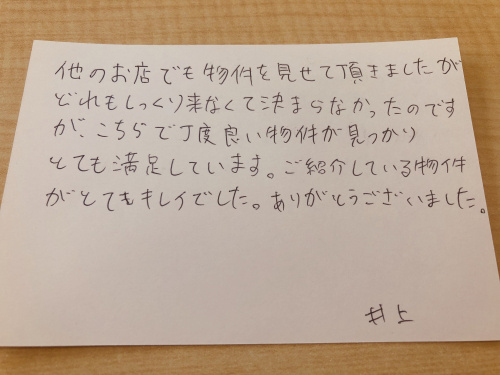 他のお店でも物件を見せて頂きましたが
どれもしっくり来なくて決まらなかったのです
が、こちらで丁度良い物件が見つかり
とても満足しています。ご紹介している物件
がとてもキレイでした。ありがとうございました。
井上